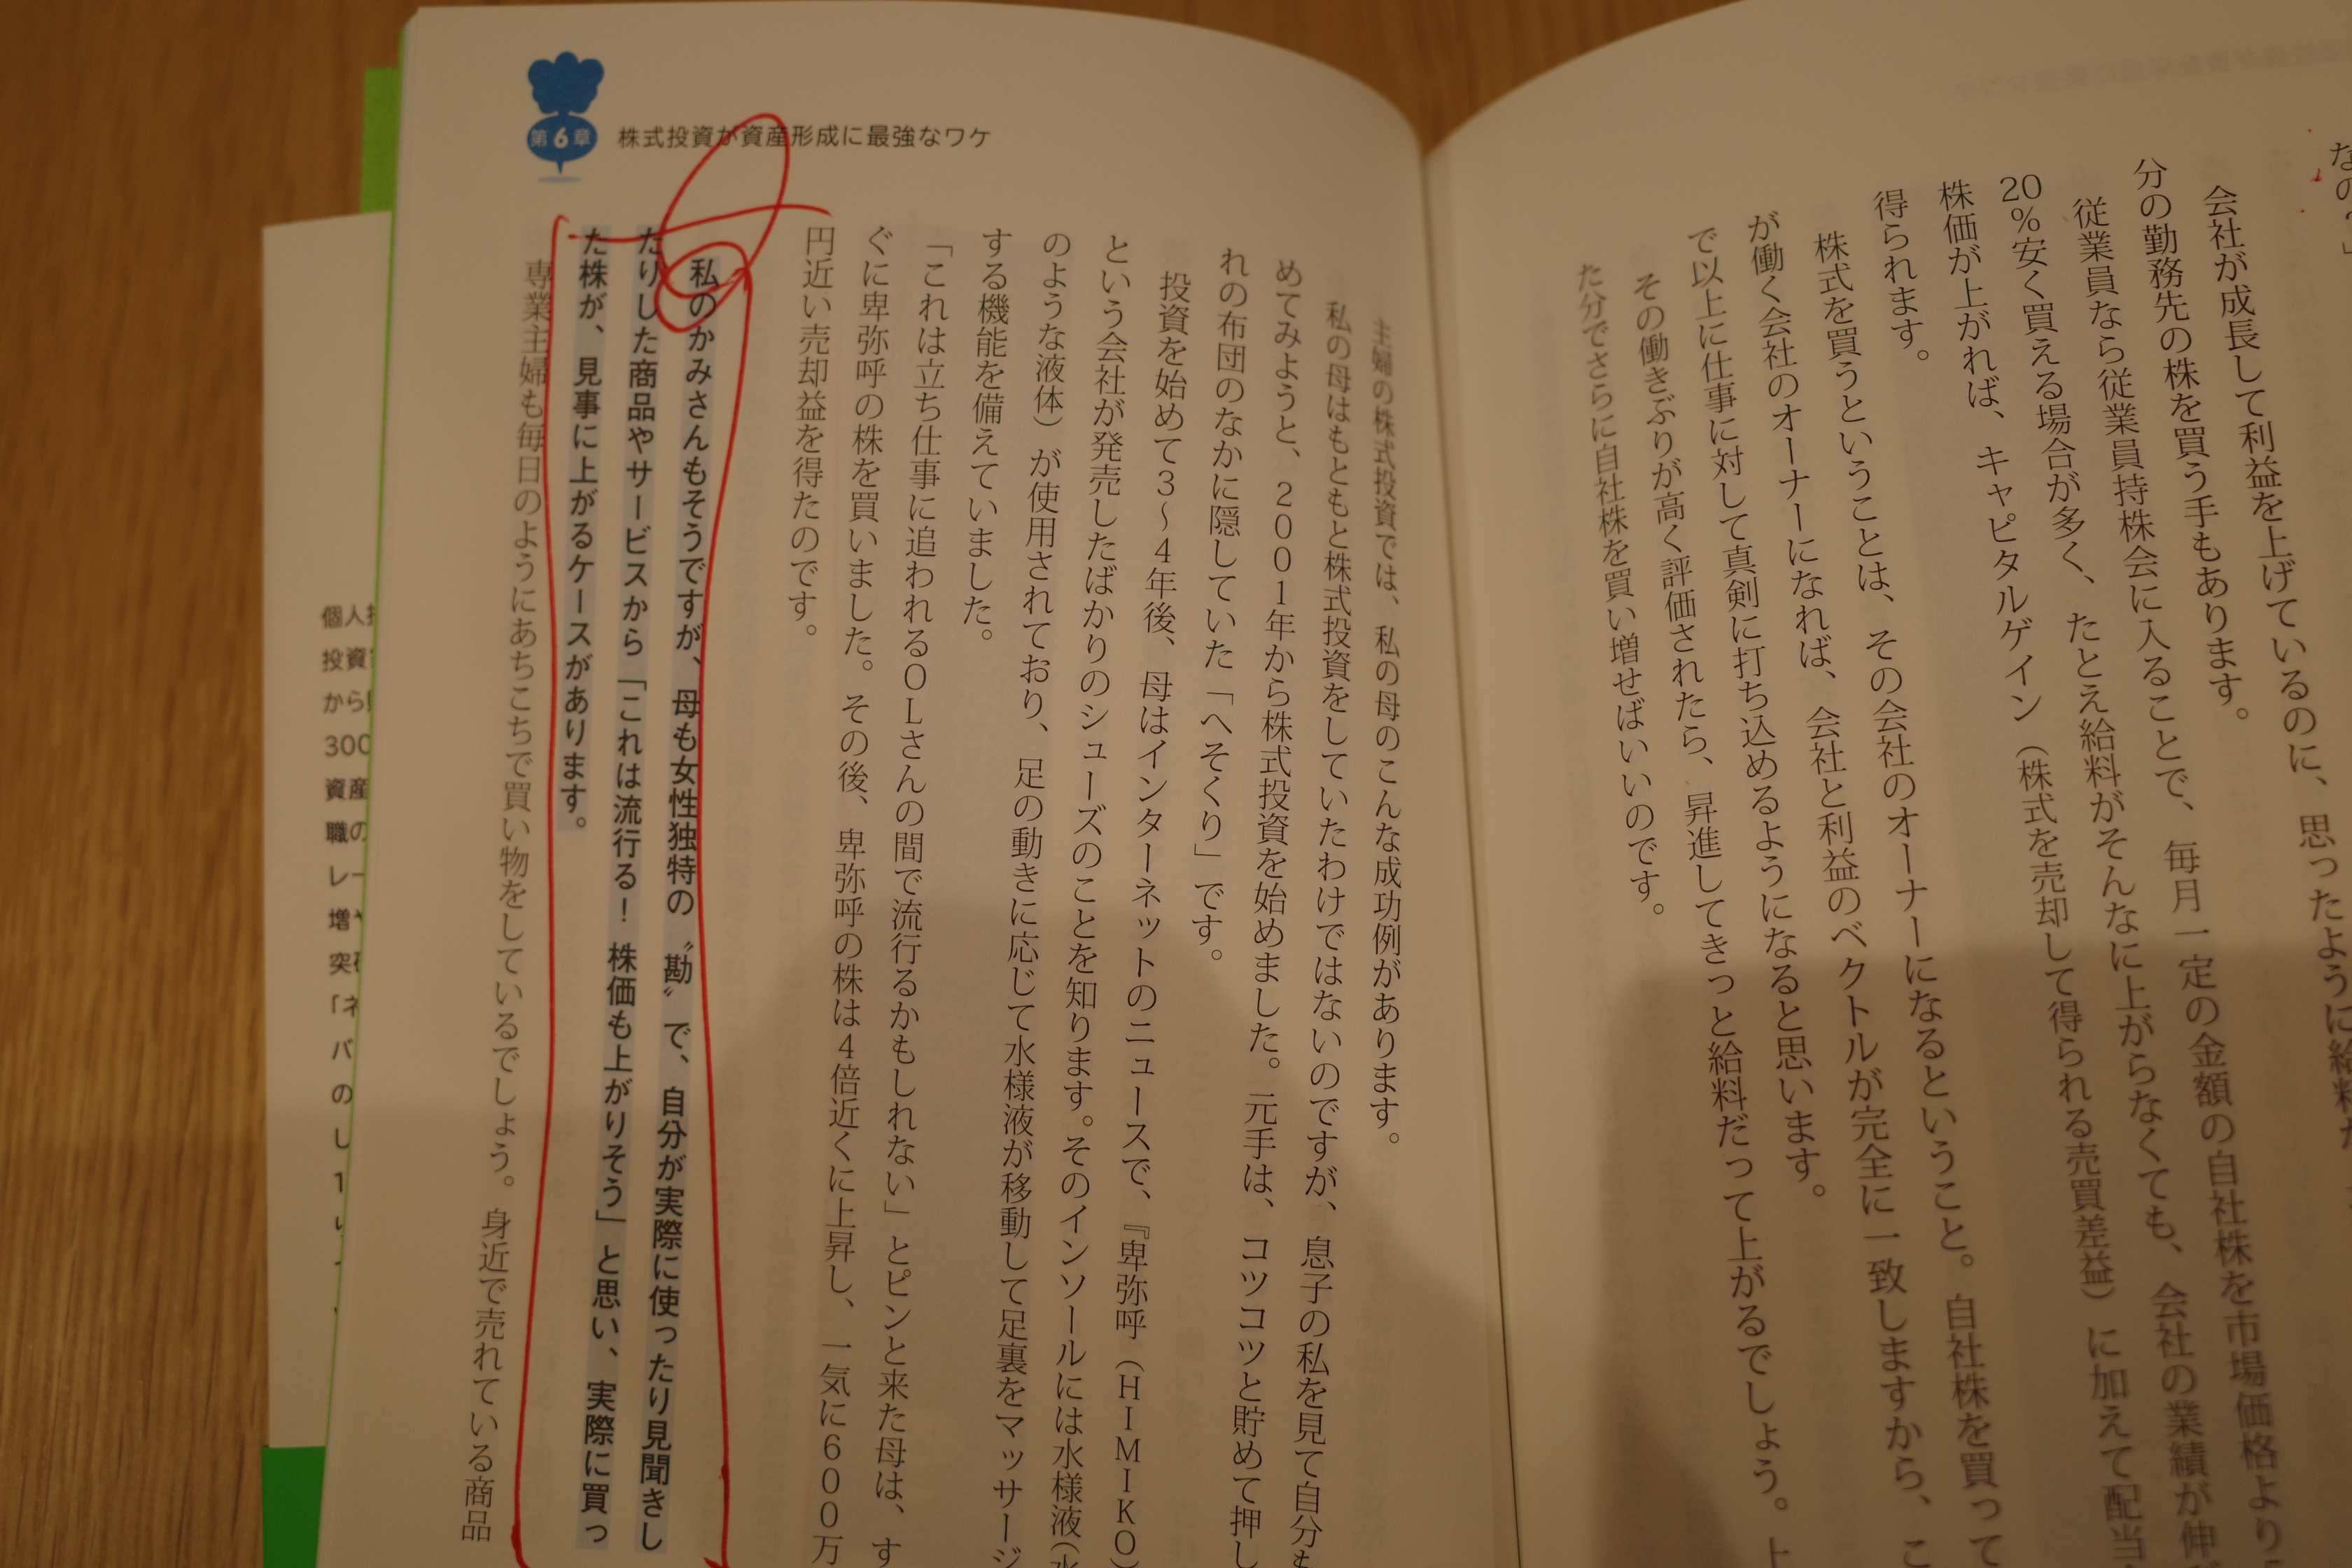 なの？」
会社が成長して利益を上げているのに、思ったように給料が
分の勤務先の株を買う手もあります。
従業員なら従業員持株会に入ることで、毎月一定の金額の自社株を市場価格より
20％安く買える場合が多く、たとえ給料がそんなに上がらなくても、会社の業績が伸
株価が上がれば、キャピタルゲイン（株式を売却して得られる売買差益）に加えて配当
得られます。
株式を買うということは、その会社のオーナーになるということ。自社株を買って
が働く会社のオーナーになれば、会社と利益のベクトルが完全に一致しますから、こ
で以上に仕事に対して真剣に打ち込めるようになると思います。
その働きぶりが高く評価されたら、昇進してきっと給料だって上がるでしょう。上
た分でさらに自社株を買い増せばいいのです。
第6章 株式投資が資産形成に最強なワケ
主婦の株式投資では、私の母のこんな成功例があります。
私の母はもともと株式投資をしていたわけではないのですが、息子の私を見て自分も
めてみようと、2001年から株式投資を始めました。元手は、コツコツと貯めて押し
れの布団のなかに隠していた「へそくり」です。
投資を始めて3～4年後、母はインターネットのニュースで、『卑弥呼（HIMIKO）
という会社が発売したばかりのシューズのことを知ります。そのインソールには水様液（水
のような液体）が使用されており、足の動きに応じて水様液が移動して足裏をマッサージ
する機能を備えていました。
「これは立ち仕事に追われるOLさんの間で流行るかもしれない」とピンと来た母は、す
ぐに卑弥呼の株を買いました。その後、卑弥呼の株は4倍近くに上昇し、一気に600万
円近い売却益を得たのです。
私のかみさんもそうですが、母も女性独特の〝勘〟で、自分が実際に使ったり見聞きし
たりした商品やサービスから「これは流行る！ 株価も上がりそう」と思い、実際に買っ
た株が、見事に上がるケースがあります。
専業主婦も毎日のようにあちこちで買い物をしているでしょう。身近で売れている商品
個人
投資
から
300
資産
職の
レー
増や
突
「ネ
バ
の
し
1